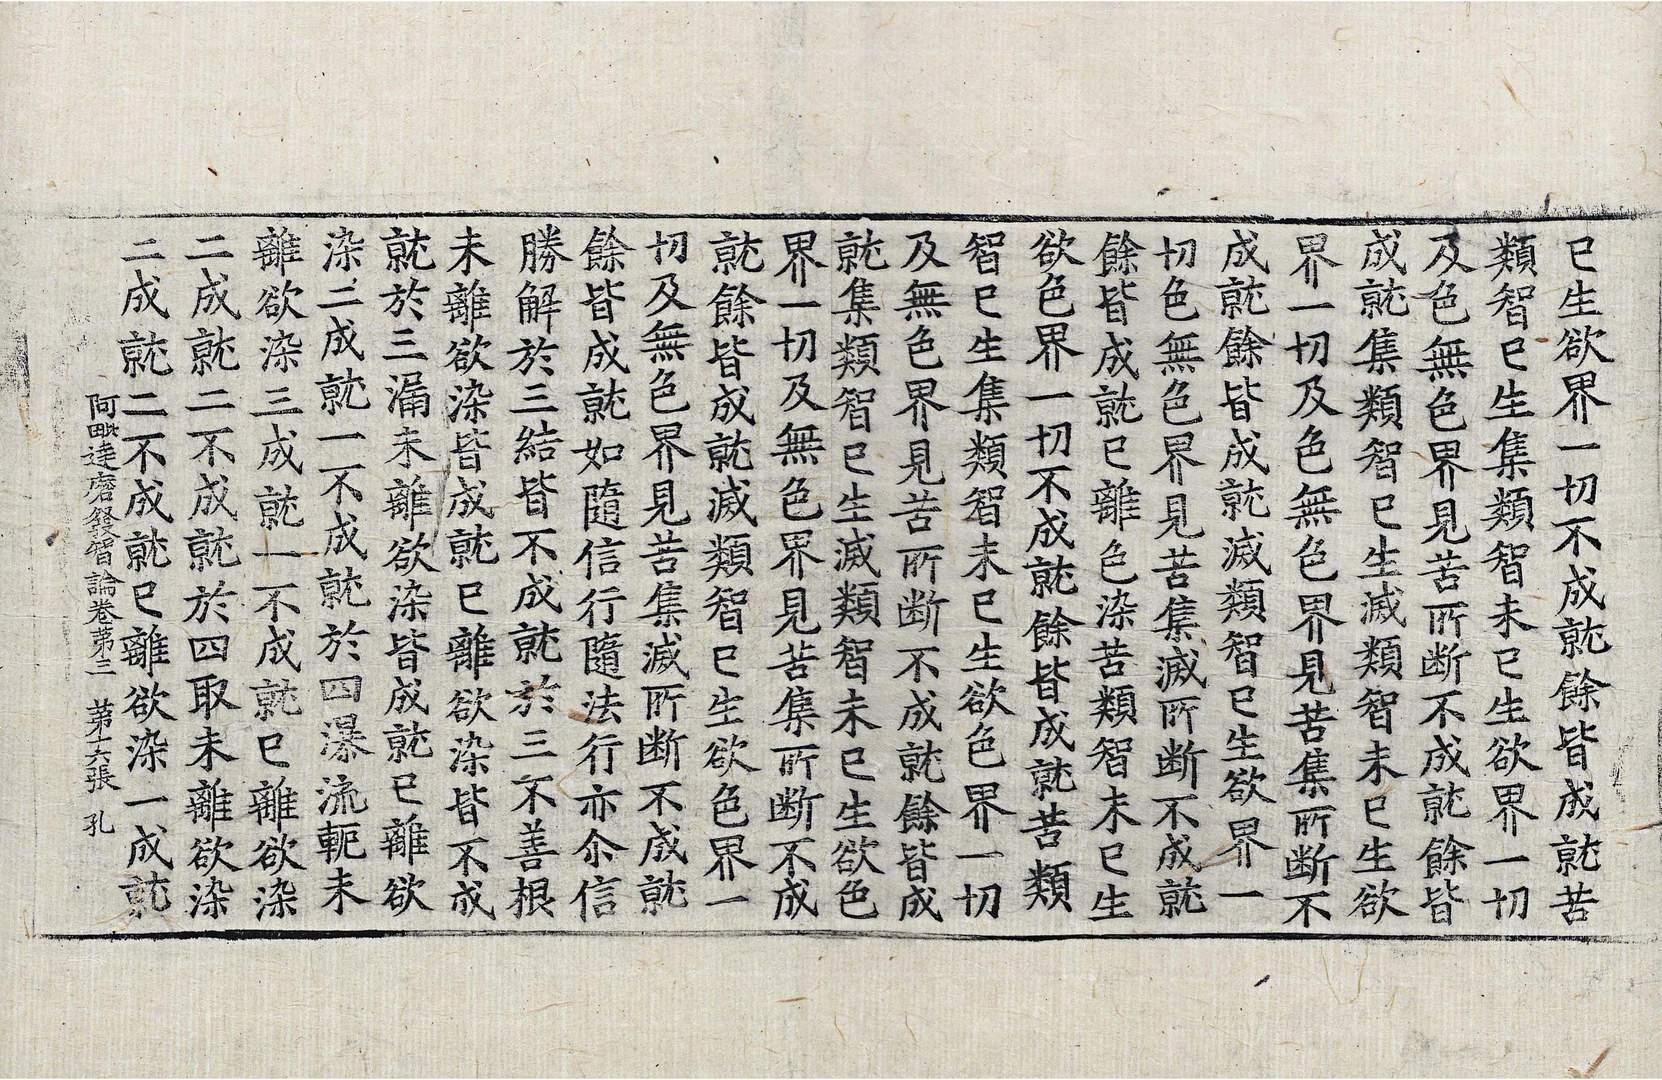 已生欲界一切不成就餘皆成就苦
類智已生集類智未已生欲界一切
及色無色界見苦所断不成就餘皆
成就集類智已生滅類智未已生欲
界一切及色無色界見苦集所断不
成就餘皆成就滅類智已生欲界一
切色無色界見苦集滅所断不成就
餘皆成就已離色染苦類智未已生
欲色界一切不成就餘皆成就苦類
智已生集類智未已生欲色界一切
及無色界見苦所断不成就餘皆成
就集類智已生滅類智未已生欲色
界一切及無色界見苦集所断不成
就餘皆成就滅類智已生欲色界一
切及無色界見苦集滅所断不成就
餘皆成就如隨信行隨法行亦尒信
勝解於三結皆不成就於三不善根
未離欲染皆成就已離欲染皆不成
就於三漏未離欲染皆成就已離欲
染二成就一不成就於四瀑流軛未
離欲染三成就一不成就已離欲染
二成就二不成就於四取未離欲染
二成就二不成就已離欲染一成就
阿毗達磨發智論卷苐三 苐十六張 孔